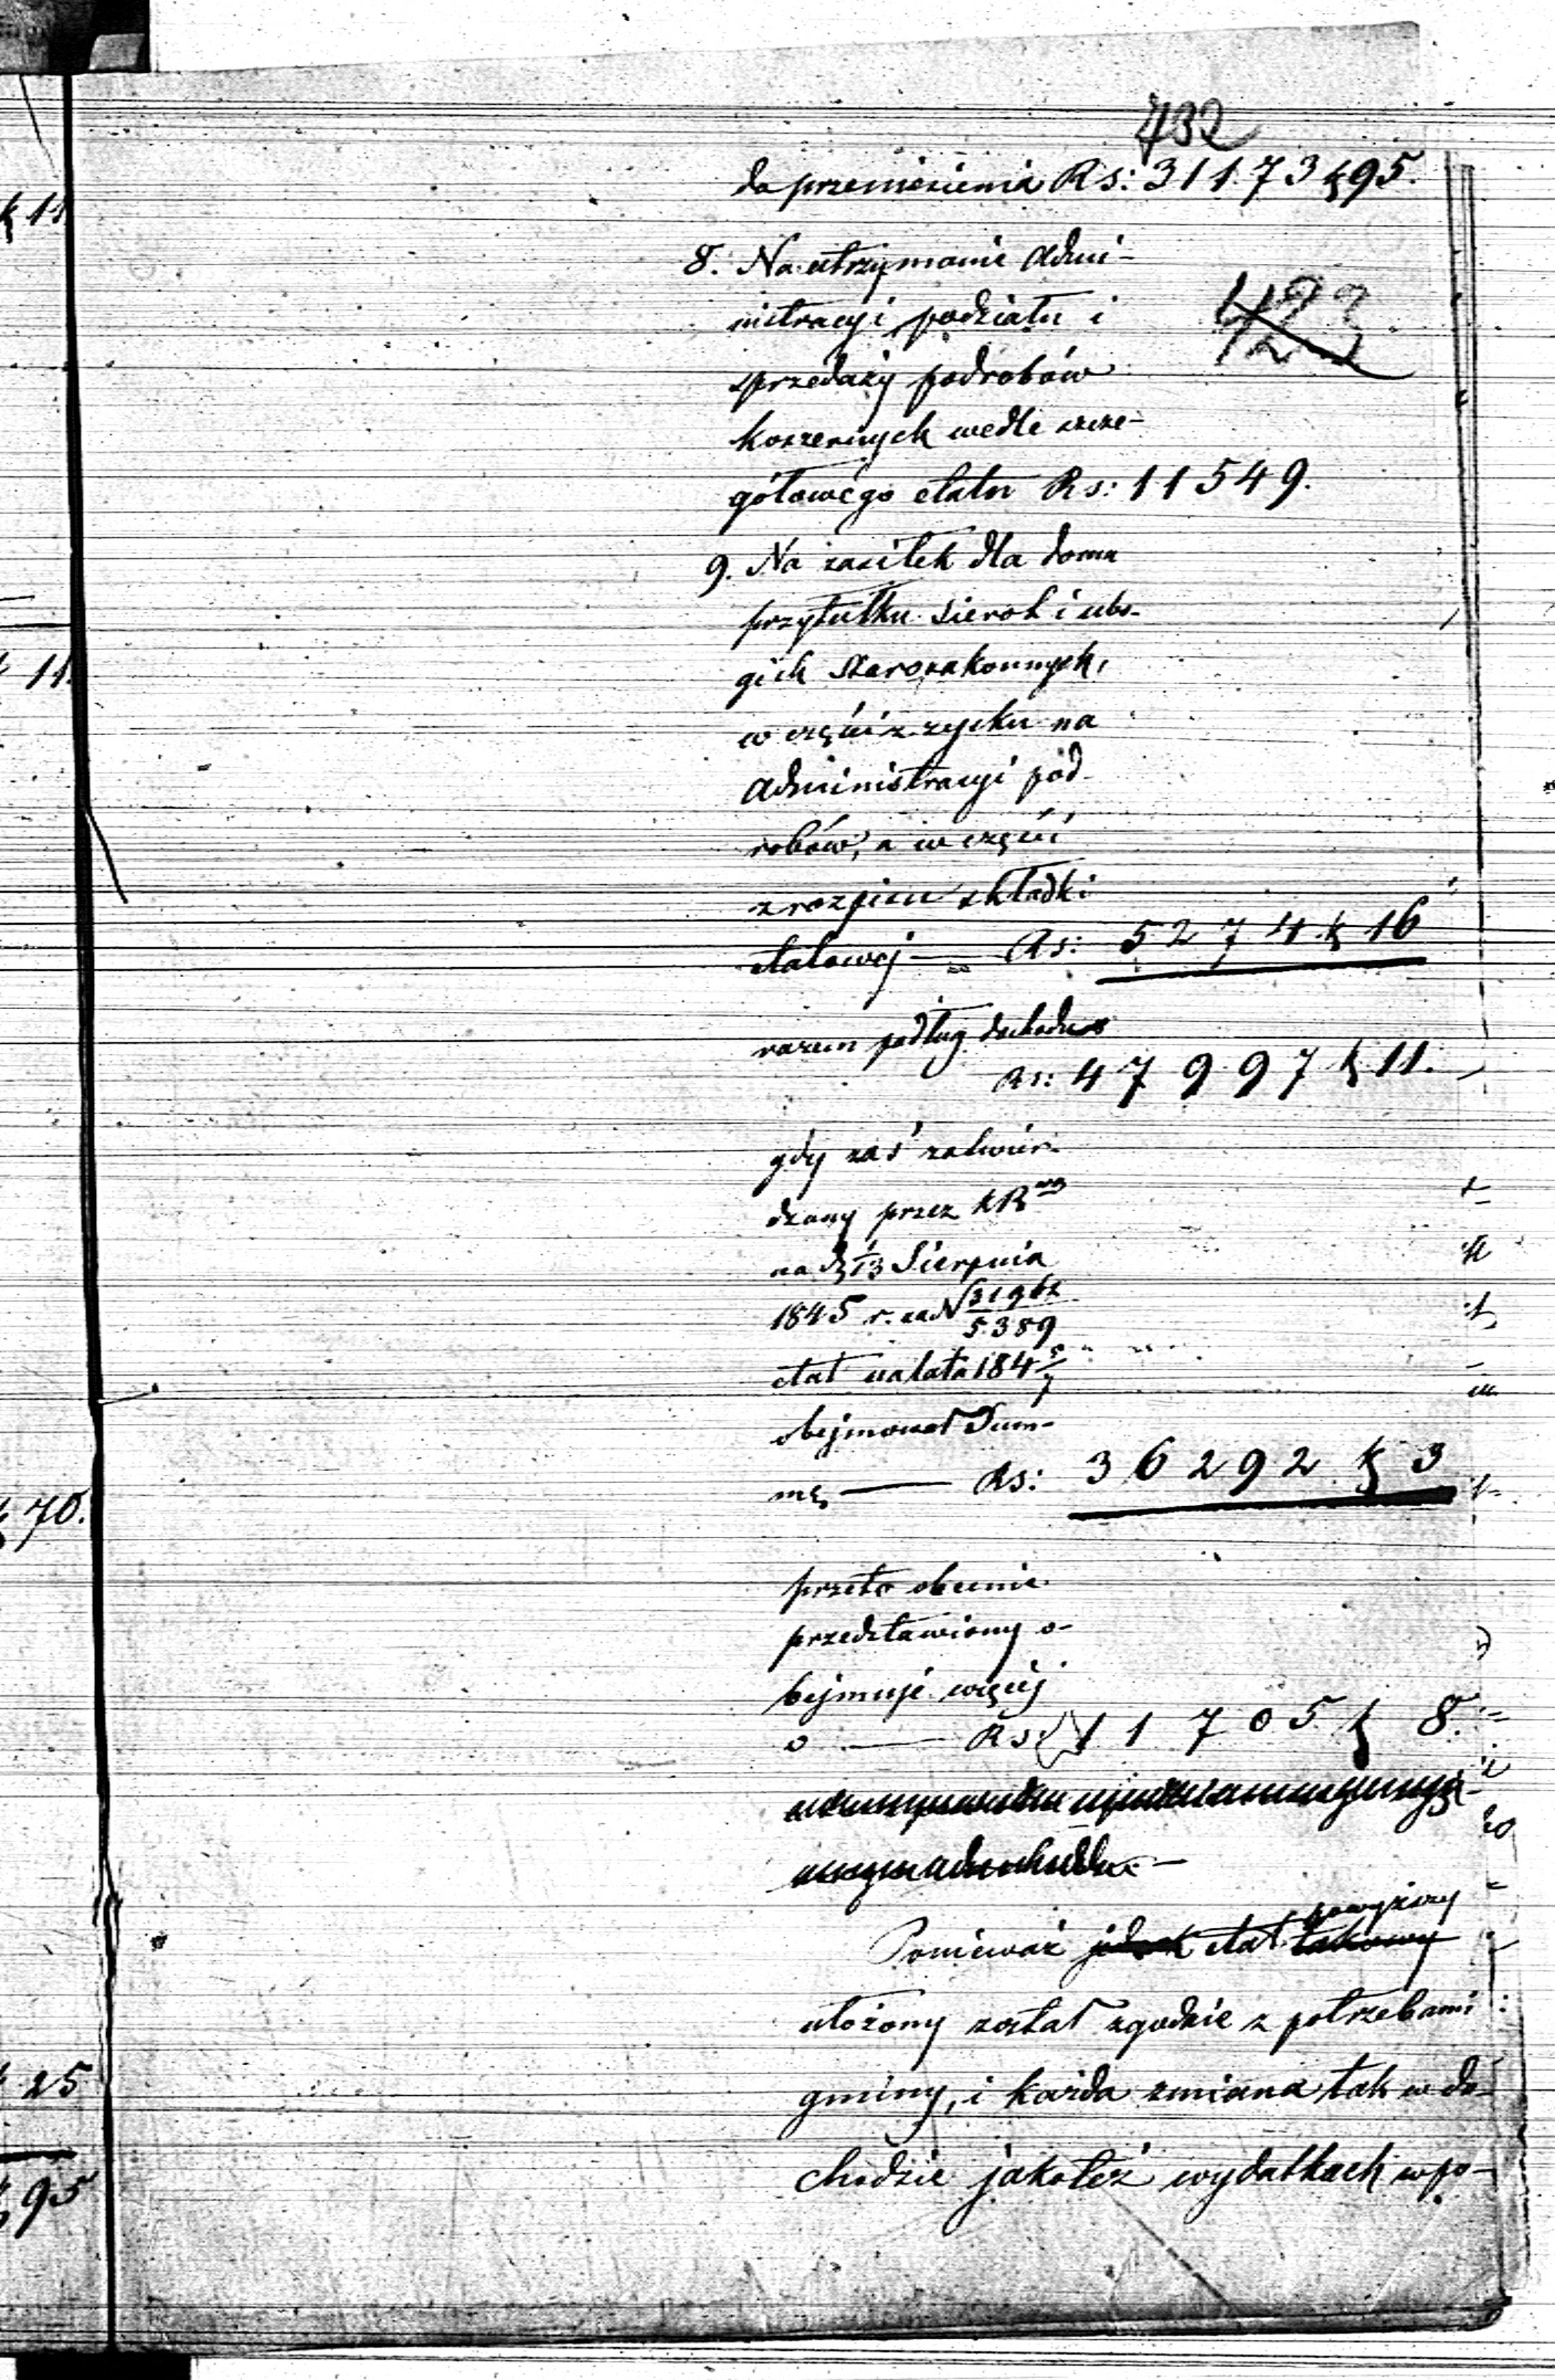 432
do przeniesienia Rs: 31173 k 95.
8. Na utrzymanie Admi-
nistracyi podziału i
423
sprzedaży podrobów
koszernych wedle szcze-
gółowego etatu Rs: 11549.
9. Na zasiłek dla domu
przytułku sierot i ubo-
gich starozakonnych,
w części z zysku na
Administracyi pod-
robów, a w części
z rozpisu składki
etatowej — Rs: 5274 k 16
razem podług dochodu
Rs: 47997 k 11.
gdy zaś zatwier-
dzony przez KR
na d 1/13 Sierpnia
1845 r. za N 31962/5389
etat na lata 184 5/7
obejmował Sum-
mę — Rs: 36292 k 3
przeto obecnie
przedstawiony o-
bejmuje więcej
o — Rs: 11705 k 8.
powyższy
Ponieważ jednak etat takowy
ułożony został zgodnie z potrzebami
gminy, i każda zmiana tak w do-
chodzie jakoteż wydatkach wpo-
k 11
k 11.
k 70.
k 25
k 95